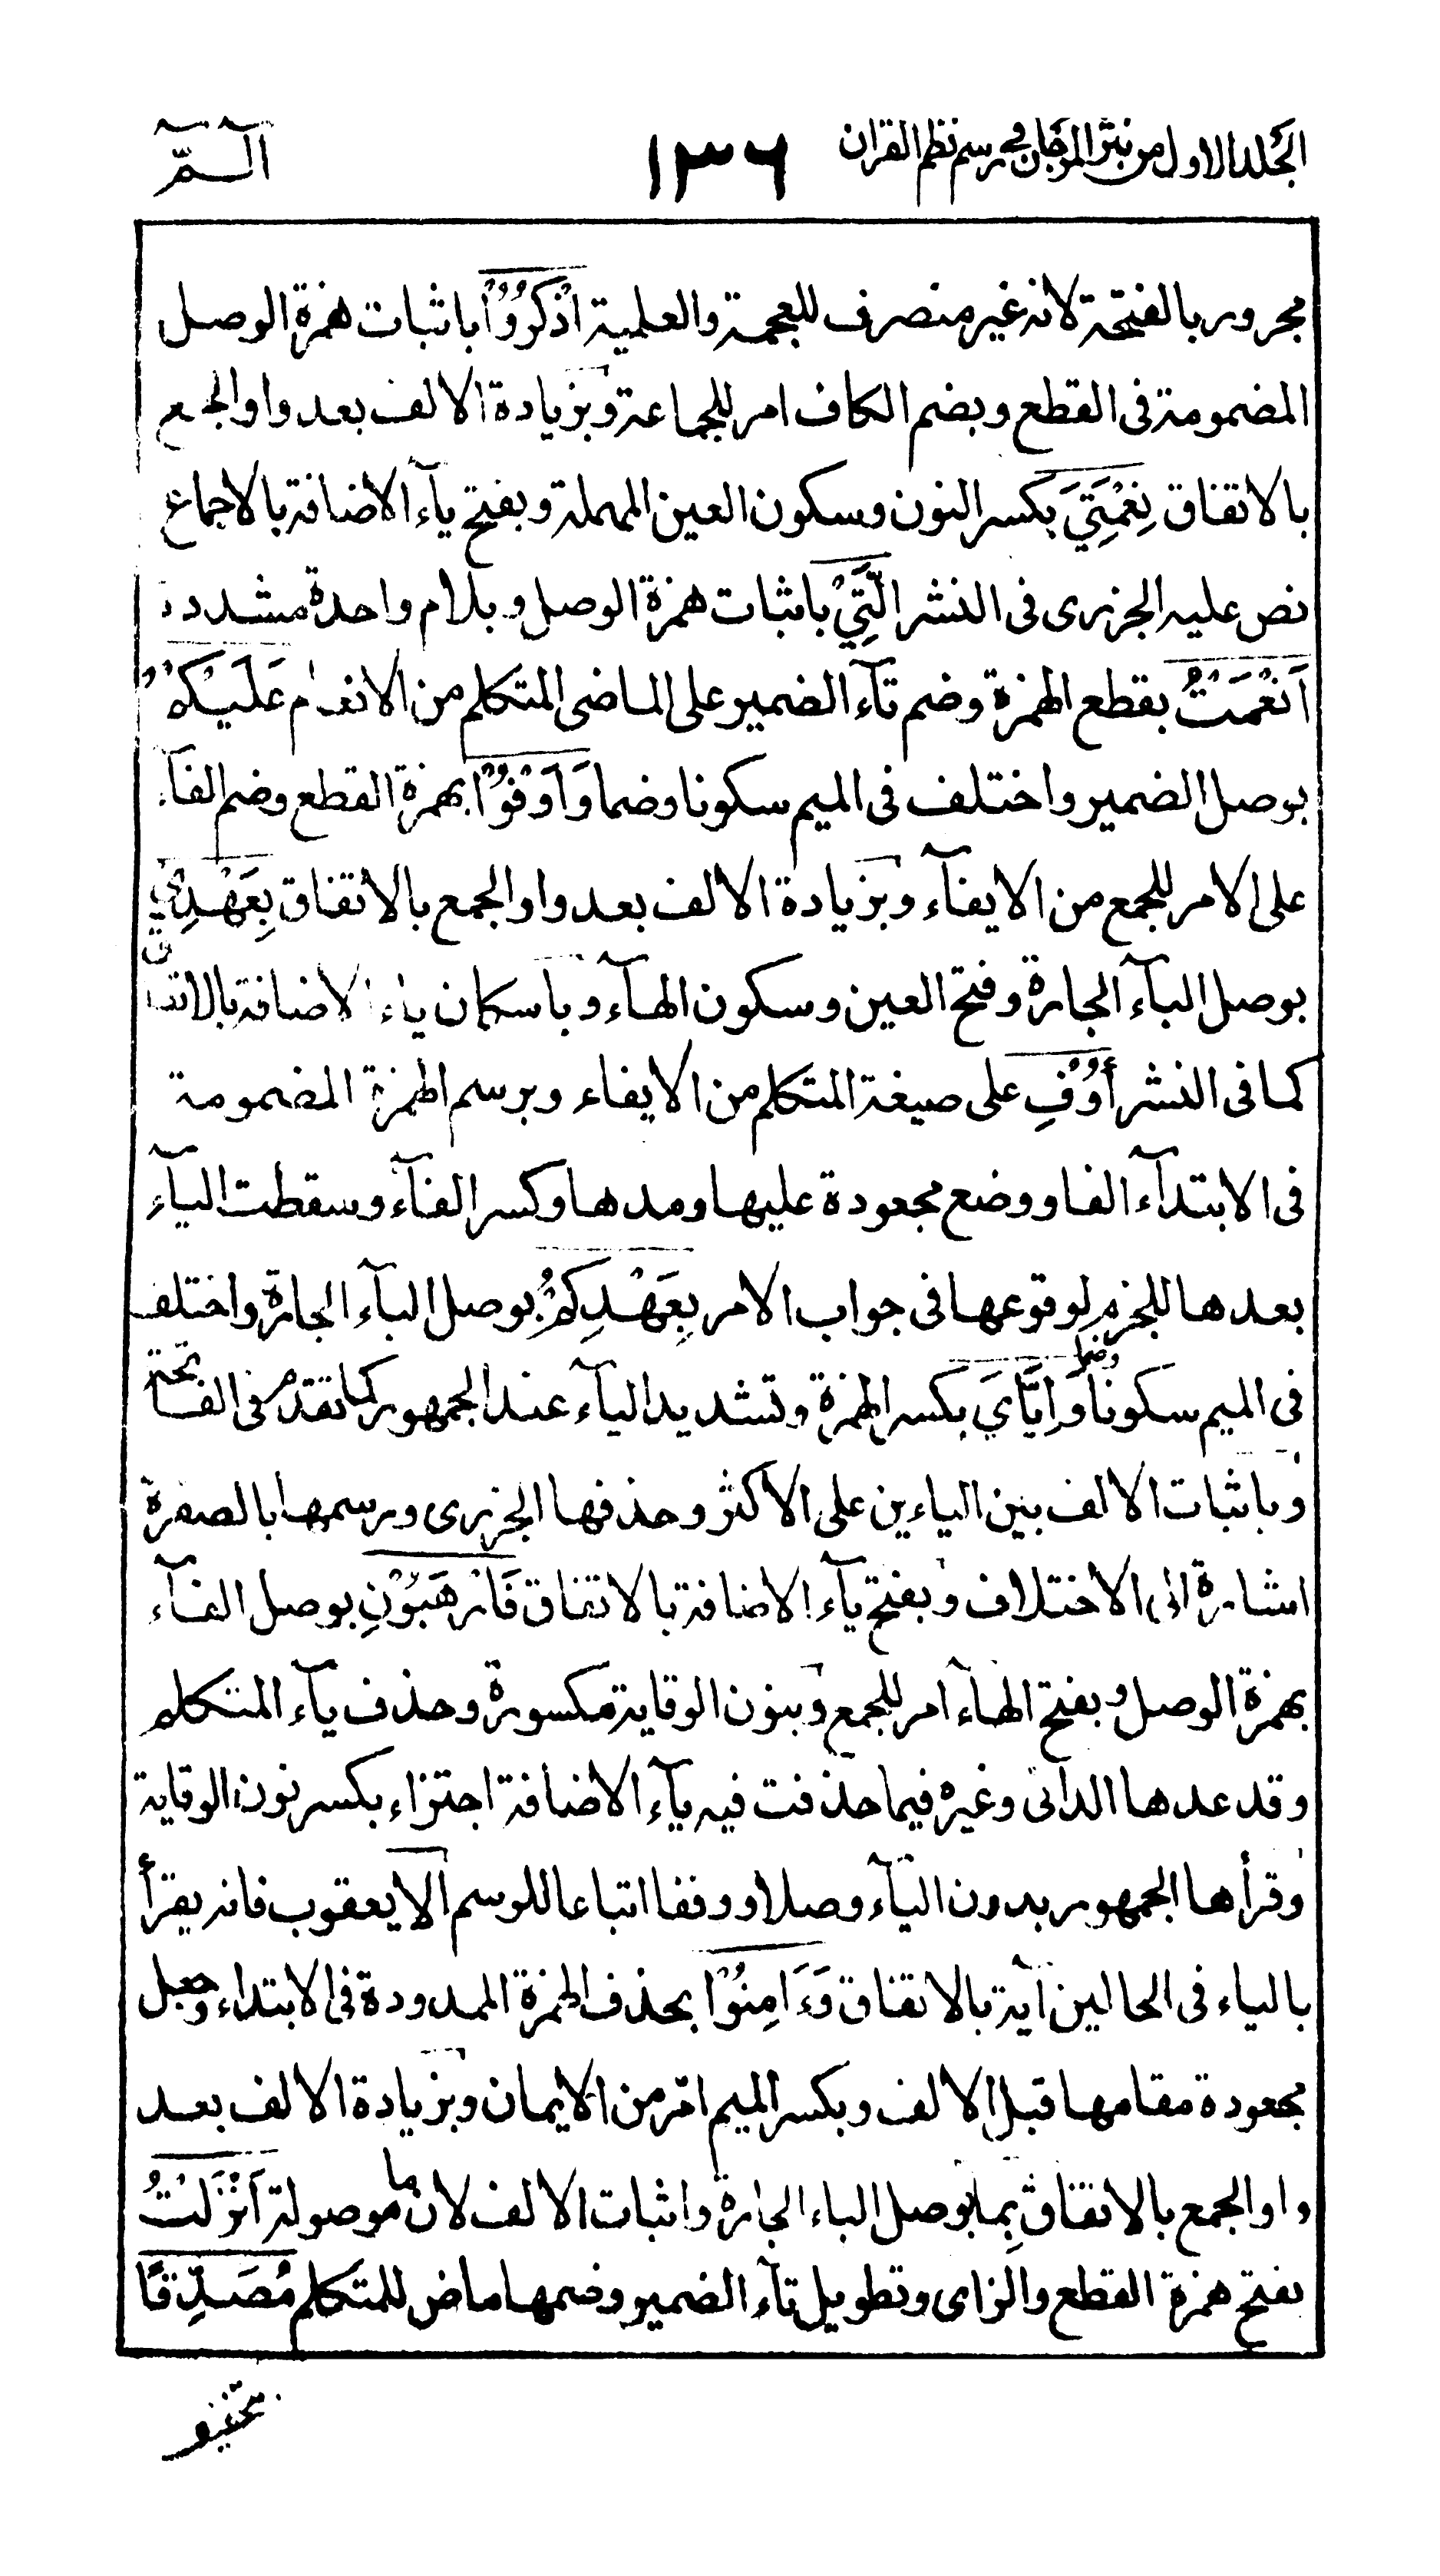 الجلد الاول من نثر المرجان في رسم نظم القران ١٣٦ الٓـمّٓ
مجرور بالفتحة لانه غير منصرف للعجمة والعلمية اذْكُرُوْا باثبات همزة الوصل
المضمومة فى القطع وبضم الكاف امر للجماعة وبزيادة الالف بعد واو الجمع
بالاتفاق نِعْمَتِيَ بكسر النون وسكون العين المهملة وبفتح ياۤء الاضافة بالاجماع
نص عليه الجزرى فى النشر الَّتِيْ باثبات همزة الوصل وبلام واحدة مشددة
اَنْعَمْتُ بقطع الهمزة وضم تآء الضمير على الماضى المتكلم من الانعام عَلَيْكُمْ
بوصل الضمير واختلف فى الميم سكونا وضما وَاَوْفُوْا بهمزة القطع وضم الفآء
على الامر للجمع من الايفآء وبزيادة الالف بعد واو الجمع بالاتفاق بِعَهْدِيْ
بوصل البآء الجارة وفتح العين وسكون الهآء وباسكان ياء الاضافة بالاتفاق
كما فى النشر أُوْفِ على صيغة المتكلم من الايفاء وبرسم الهمزة المضمومة
فى الابتدآء الفا ووضع مجعودة عليها ومدها وكسر الفآء وسقطت اليآء
بعدها للجزم لوقوعها فى جواب الامر بِعَهْدِكُمْ بوصل البآء الجارة واختلف
فى الميم سكونا وضما وَاِيَّايَ بكسر الهمزة وتشديد اليآء عند الجمهور كما تقدم فى الفاتحة
وباثبات الالف بين الياءين على الاكثر وحذفها الجزرى ورسمها بالصفرة
اشارة الى الاختلاف وبفتح يآء الاضافة بالاتفاق فَارْهَبُوْنِ بوصل الفآء
بهمزة الوصل وبفتح الهآء امر للجمع وبنون الوقاية مكسورة وحذف يآء المتكلم
وقد عدها الدانى وغيره فيما حذفت فيه يآء الاضافة اجتزاء بكسر نون الوقاية
وقرأها الجمهور بدون اليآء وصلا ووقفا اتباعا للرسم الا يعقوب فانه يقرأ
بالياء فى الحالين آية بالاتفاق وَءَامِنُوْا بحذف الهمزة الممدودة فى الابتداء وجعل
مجعودة مقامها قبل الالف وبكسر الميم امر من الايمان وبزيادة الالف بعد
واو الجمع بالاتفاق بِمَا بوصل الباء الجارة واثبات الالف لان ما موصولة اَنْزَلْتُ
بفتح همزة القطع والزاى وتطويل تآء الضمير وضمها ماض للمتكلم مُصَدِّقًا